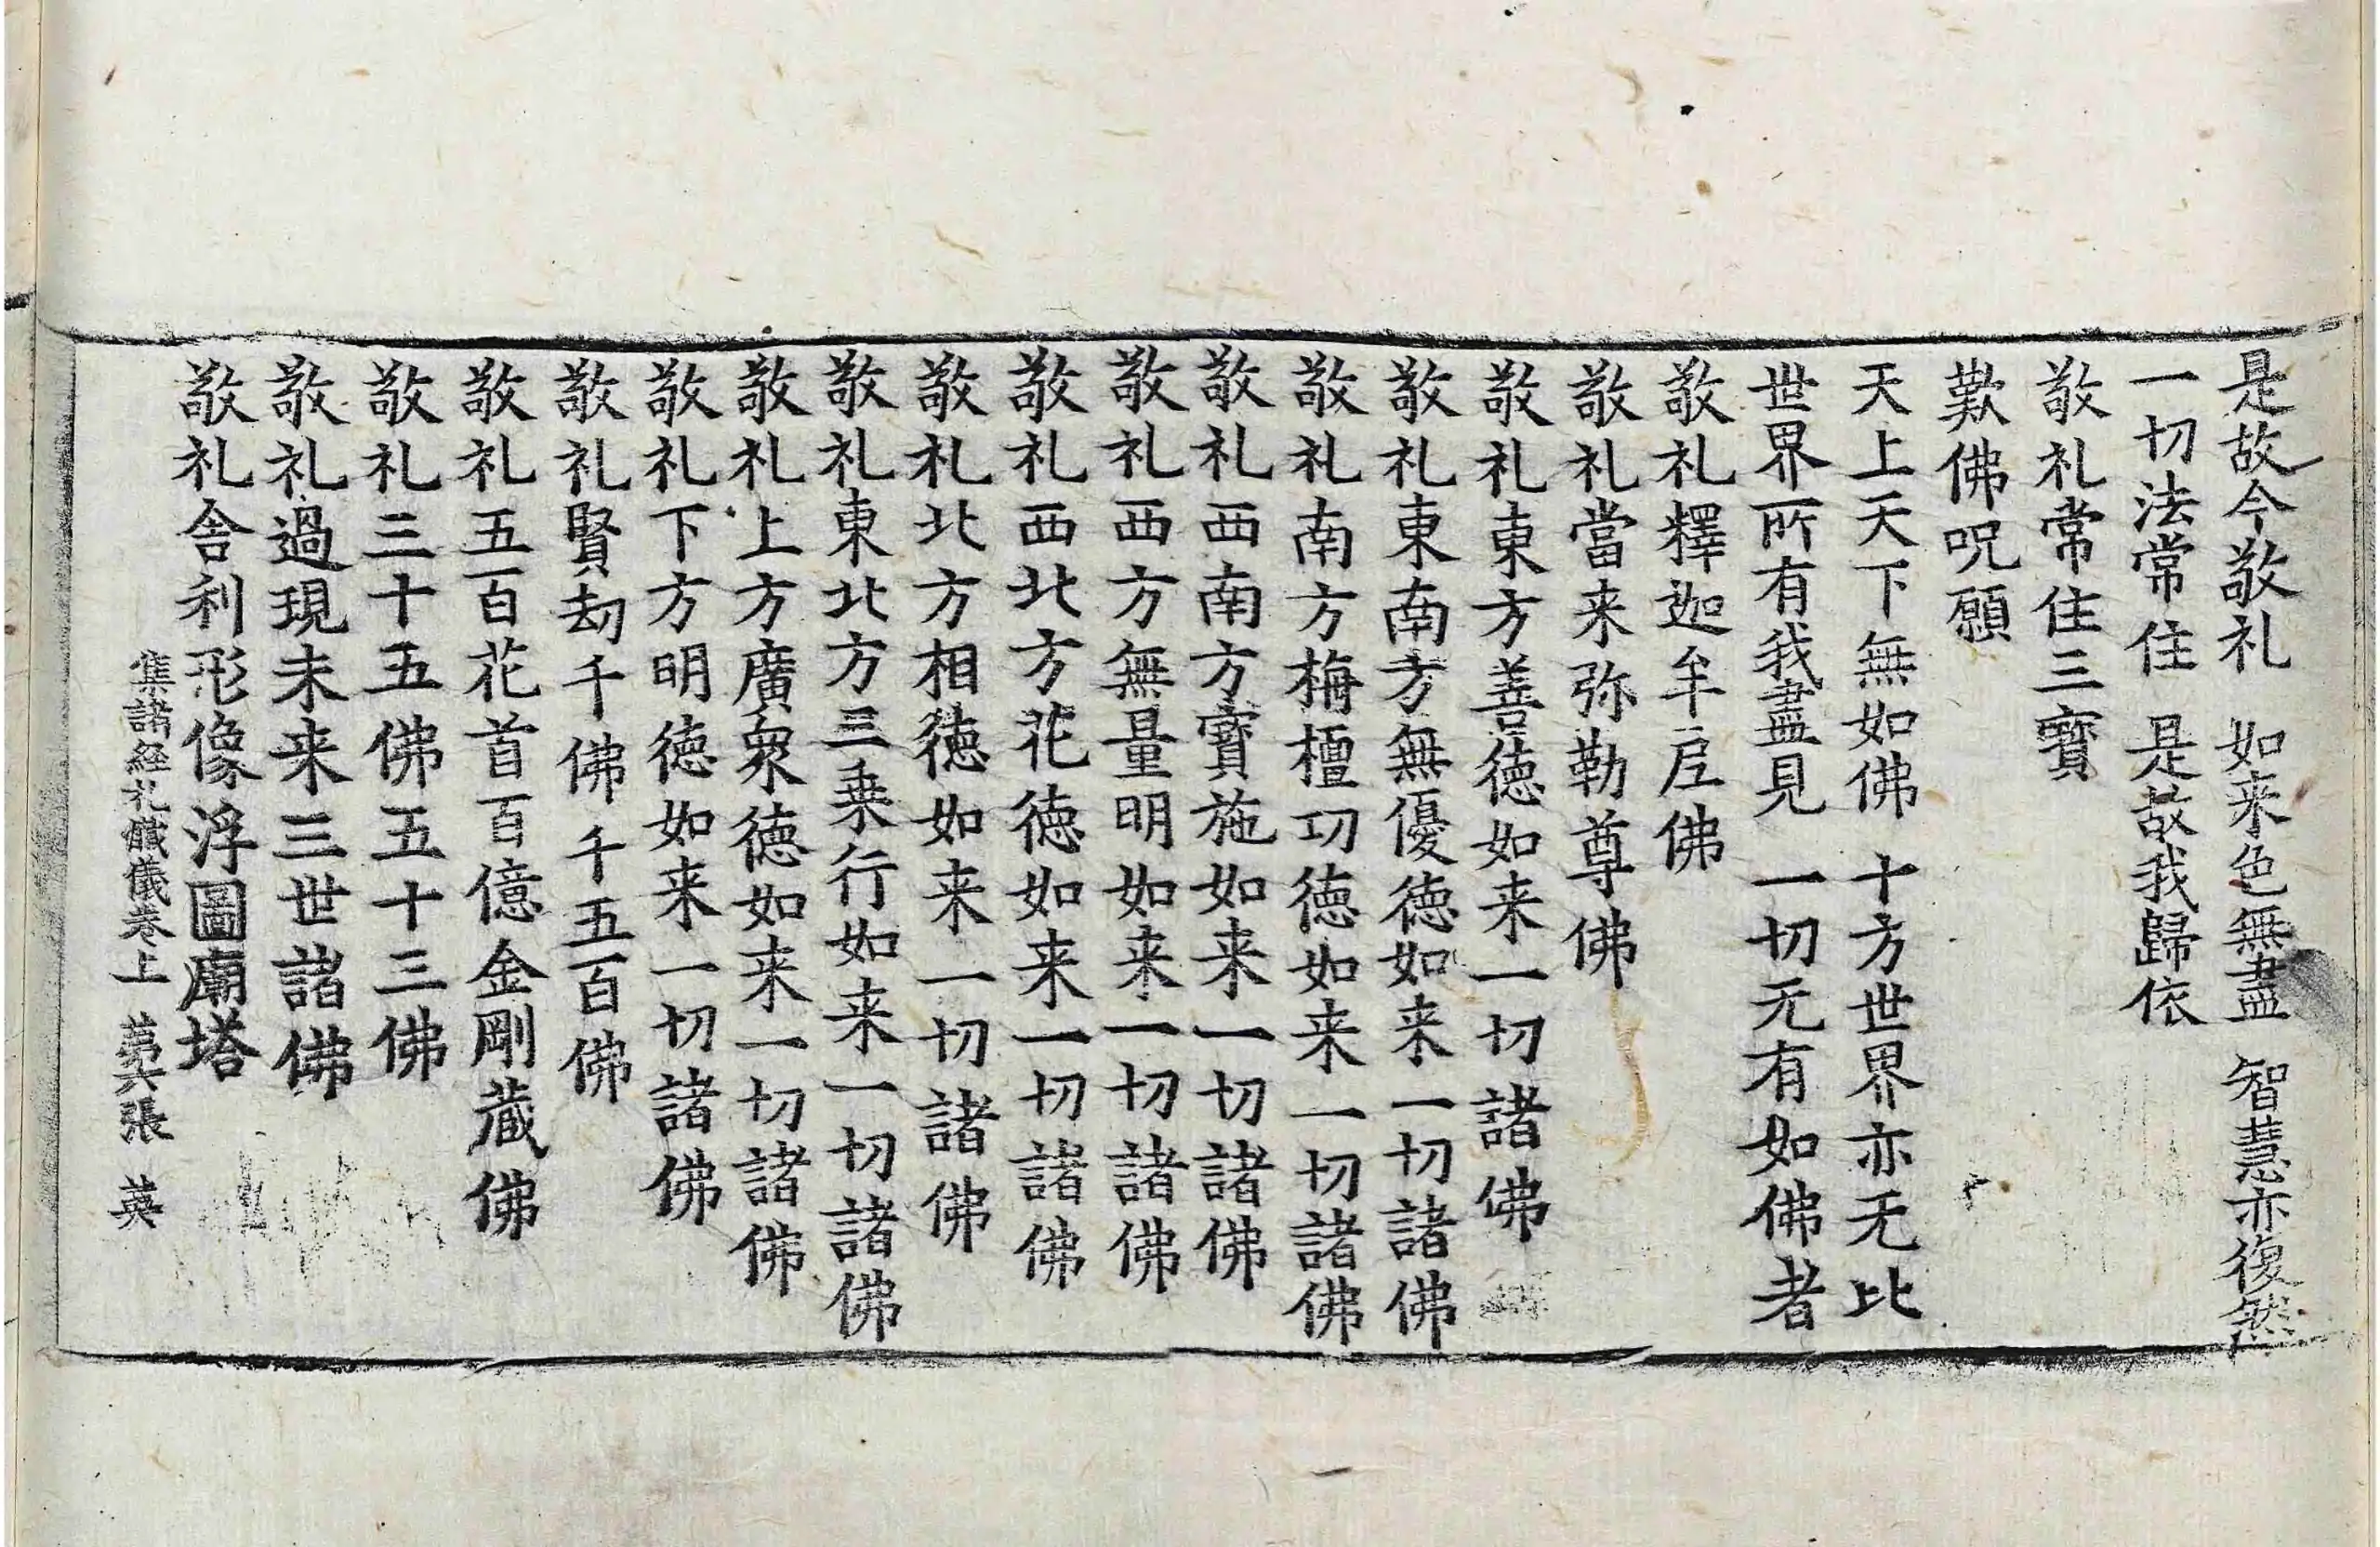 是故今敬礼 如来色無盡 智慧亦復然
一切法常住 是故我歸依
敬礼常住三寳
歎佛呪願
天上天下無如佛 十方世界亦无比
世界所有我盡見 一切无有如佛者
敬礼釋迦牟𡰱佛
敬礼當来弥勒尊佛
敬礼東方善徳如来一切諸佛
敬礼東南方無優徳如来一切諸佛
敬礼南方栴檀功徳如来一切諸佛
敬礼西南方寳施如来一切諸佛
敬礼西方無量明如来一切諸佛
敬礼西北方花徳如来一切諸佛
敬礼北方相徳如来一切諸佛
敬礼東北方三乗行如来一切諸佛
敬礼上方廣衆徳如来一切諸佛
敬礼下方明徳如来一切諸佛
敬礼賢刼千佛千五百佛
敬礼五百花首百億金剛蔵佛
敬礼三十五佛五十三佛
敬礼過現未来三世諸佛
敬礼舎利形像浮圖廟塔
集諸経礼懺儀卷上 苐六張 英